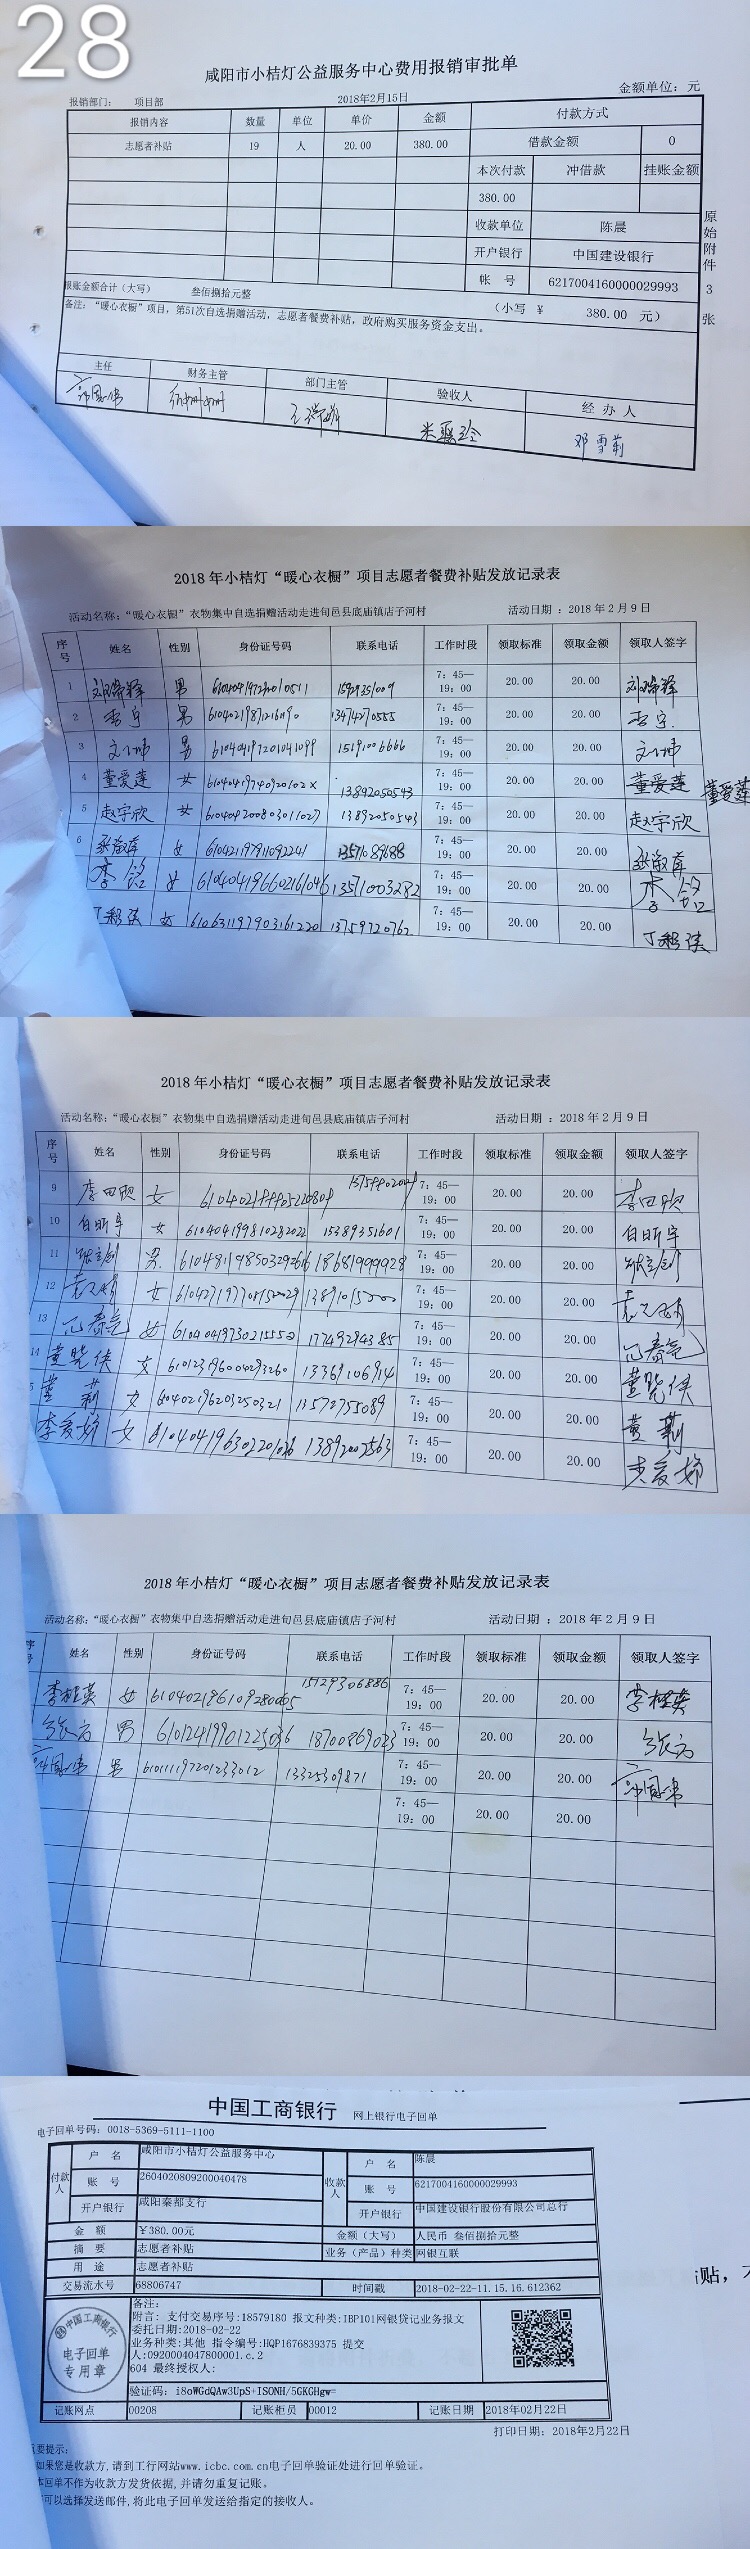 28
咸阳市小桔灯公益服务中心费用报销审批单
报销部门： 项目部 2018年2月15日 金额单位：元
报销内容 数量 单位 单价 金额 付款方式
志愿者补贴 19 人 20.00 380.00 借款金额 0
本次付款 冲借款 挂账金额
380.00
收款单位 陈晨
开户银行 中国建设银行
帐 号 6217004160000029993
原始附件 3 张
报账金额合计（大写） 叁佰捌拾元整 （小写 ¥ 380.00 元）
备注：“暖心衣橱”项目，第51次自选捐赠活动，志愿者餐费补贴，政府购买服务资金支出。
主任 财务主管 部门主管 验收人 经办人
邓雪莉
2018 年小桔灯“暖心衣橱”项目志愿者餐费补贴发放记录表
活动名称：“暖心衣橱”衣物集中自选捐赠活动走进旬邑县底庙镇店子河村 活动日期：2018 年 2 月 9 日
序号 姓名 性别 身份证号码 联系电话 工作时段 领取标准 领取金额 领取人签字
1 男 7：45—19：00 20.00 20.00
2 男 13474270555 7：45—19：00 20.00 20.00
3 男 610404197201041099 15191006666 7：45—19：00 20.00 20.00
4 董爱莲 女 61040419740920102X 13892050543 7：45—19：00 20.00 20.00 董爱莲 董爱莲
5 赵宇欣 女 610404200803011027 13892050543 7：45—19：00 20.00 20.00 赵宇欣
6 女 13571089688 7：45—19：00 20.00 20.00
女 610404196602161046 13571003282 7：45—19：00 20.00 20.00
女 610631197903161220 13759720762 7：45—19：00 20.00 20.00
2018 年小桔灯“暖心衣橱”项目志愿者餐费补贴发放记录表
活动名称：“暖心衣橱”衣物集中自选捐赠活动走进旬邑县底庙镇店子河村 活动日期 ：2018 年 2 月 9 日
序号 姓名 性别 身份证号码 联系电话 工作时段 领取标准 领取金额 领取人签字
9 李田欣 女 7：45—19：00 20.00 20.00 李田欣
10 白昕宇 女 610404199810282022 15389351601 7：45—19：00 20.00 20.00 白昕宇
11 男 18681999928 7：45—19：00 20.00 20.00
12 女 7：45—19：00 20.00 20.00
13 女 17749294385 7：45—19：00 20.00 20.00
14 董晓侠 女 610123196004293260 13369106914 7：45—19：00 20.00 20.00 董晓侠
5 董莉 女 610402196203250321 13572755089 7：45—19：00 20.00 20.00 董莉
李爱娣 女 13892002563 7：45—19：00 20.00 20.00 李爱娣
2018 年小桔灯“暖心衣橱”项目志愿者餐费补贴发放记录表
活动名称：“暖心衣橱”衣物集中自选捐赠活动走进旬邑县底庙镇店子河村 活动日期 ：2018 年 2 月 9 日
序号 姓名 性别 身份证号码 联系电话 工作时段 领取标准 领取金额 领取人签字
李桂英 女 610402196109280065 15129306886 7：45—19：00 20.00 20.00 李桂英
张方 男 61012419901225036 18700869023 7：45—19：00 20.00 20.00 张方
男 610111197201233012 13325309871 7：45—19：00 20.00 20.00
7：45—19：00 20.00 20.00
中国工商银行 网上银行电子回单
电子回单号码：0018-5369-5111-1100
付款人 户 名 咸阳市小桔灯公益服务中心 收款人 户 名 陈晨
账 号 2604020809200040478 账 号 6217004160000029993
开户银行 咸阳秦都支行 开户银行 中国建设银行股份有限公司总行
金 额 ¥380.00元 金额（大写） 人民币 叁佰捌拾元整
摘 要 志愿者补贴 业务（产品）种类 网银互联
用 途 志愿者补贴
交易流水号 68806747 时间戳 2018-02-22-11.15.16.612362
中国工商银行
电子回单
专用章
备注：
附言：支付交易序号:18579180 报文种类:IBP101网银贷记业务报文
委托日期:2018-02-22
业务种类:其他 指令编号:HQP1676839375 提交
人:0920004047800001.c.2
604 最终授权人:
验证码：i8oWGdQAw3UpS+ISONH/5GKGHgw=
记账网点 00208 记账柜员 00012 记账日期 2018年02月22日
打印日期：2018年2月22日
要提示：
如果您是收款方,请到工行网站www.icbc.com.cn电子回单验证处进行回单验证。
本回单不作为收款方发货依据,并请勿重复记账。
可以选择发送邮件,将此电子回单发送给指定的接收人。
贴，